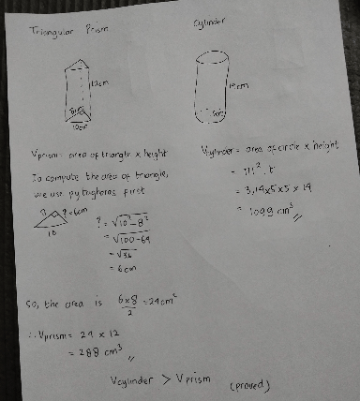 Triangular Prism
Cylinder
12cm
10cm
14cm
5cm
Vprism = area of triangle x height
To compute the area of triangle,
we use pytaghoras first
8
? = 6cm
10
? = √10 - 8²
= √100 - 64
= √36
= 6cm
So, the area is 6x8/2 = 24cm²
∴ Vprism = 24 x 12
= 288 cm³
Vcylinder = area of circle x height
= πr². t
= 3,14x5x5 x 14
= 1099 cm³
Vcylinder > Vprism (proved)